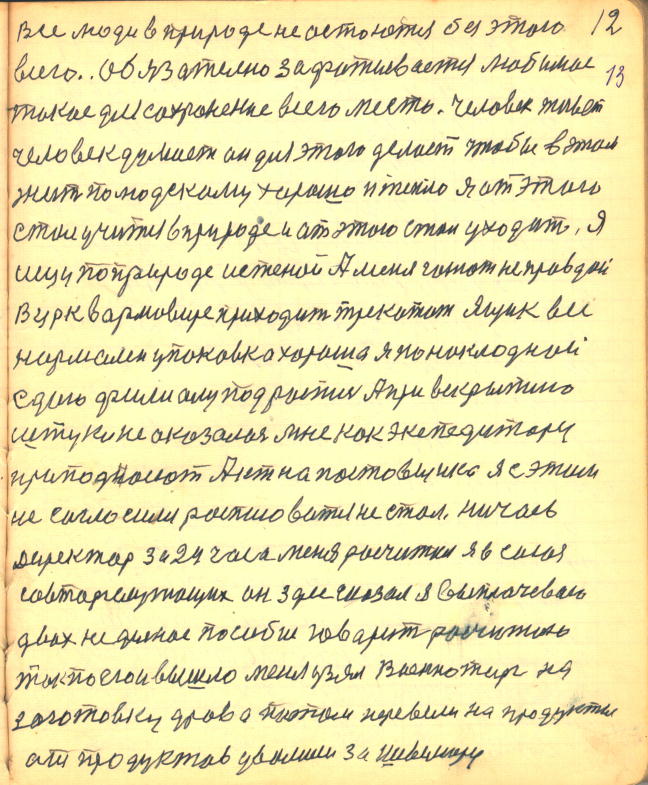 Все люди в природе не остоются без этого 12
всего.. Обязателно зафатиевается любимое 13
такое для сохранение всего место. Человек живет
человек думает он для этого делает чтобы в этом
жить по людскому хорошо и тепло я от этого
стал учится в природе и от этого стал уходить, я
ищу по природе истеной А меня гонют не правдой
В цркв армавире приходит трекотаж Ящик все
нармален упоковка хороша я по нокладной
сдаю филиалу под роспися А при вскрытию
штуки не оказалося мне как экспедитору
приподносют Акт на поставщика я с этим
не согласили росписоватя не стал. Ничаев
директар за 24 часа меня росчитал я в союз
совторслужащих он здесь сказал я выплачеваю
двох неделное пособие говарит росчитаю
так по егои вышло меня узял Военноторг на
заготовку дрова потом перевели на продукты
от продуктов уволили за